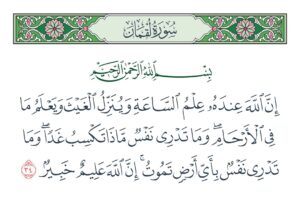 سُورَةُ لُقْمَانَ
بِسْمِ اللَّهِ الرَّحْمَٰنِ الرَّحِيمِ
إِنَّ اللَّهَ عِندَهُ عِلْمُ السَّاعَةِ وَيُنَزِّلُ الْغَيْثَ وَيَعْلَمُ مَا
فِي الْأَرْحَامِ ۖ وَمَا تَدْرِي نَفْسٌ مَّاذَا تَكْسِبُ غَدًا ۖ وَمَا
تَدْرِي نَفْسٌ بِأَيِّ أَرْضٍ تَمُوتُ ۚ إِنَّ اللَّهَ عَلِيمٌ خَبِيرٌ ٣٤